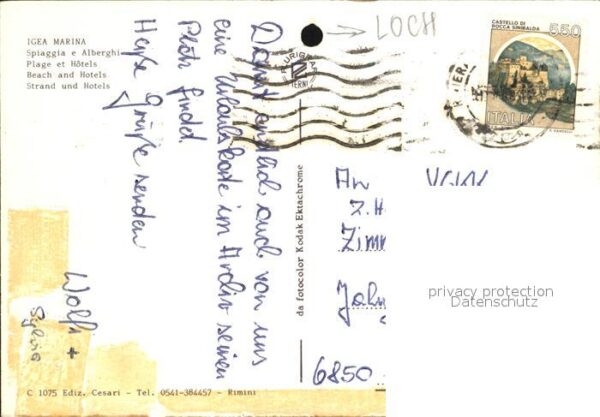 IGEA MARINA
Spiaggia e Alberghi
Plage et Hôtels
Beach and Hotels
Strand und Hotels
LOCH
CASTELLO DI
ROCCA SINIBALDA
550
ITALIA
Damit endlich auch von uns
eine Urlaubskarte im Archiv seinen
Platz findet
Heiße Grüße senden
Wolfi +
Sylvia
da fotocolor Kodak Ektachrome
An
z.H
Zimm
Jahn
6850
privacy protection
Datenschutz
C 1075 Ediz. Cesari - Tel. 0541-384457 - Rimini